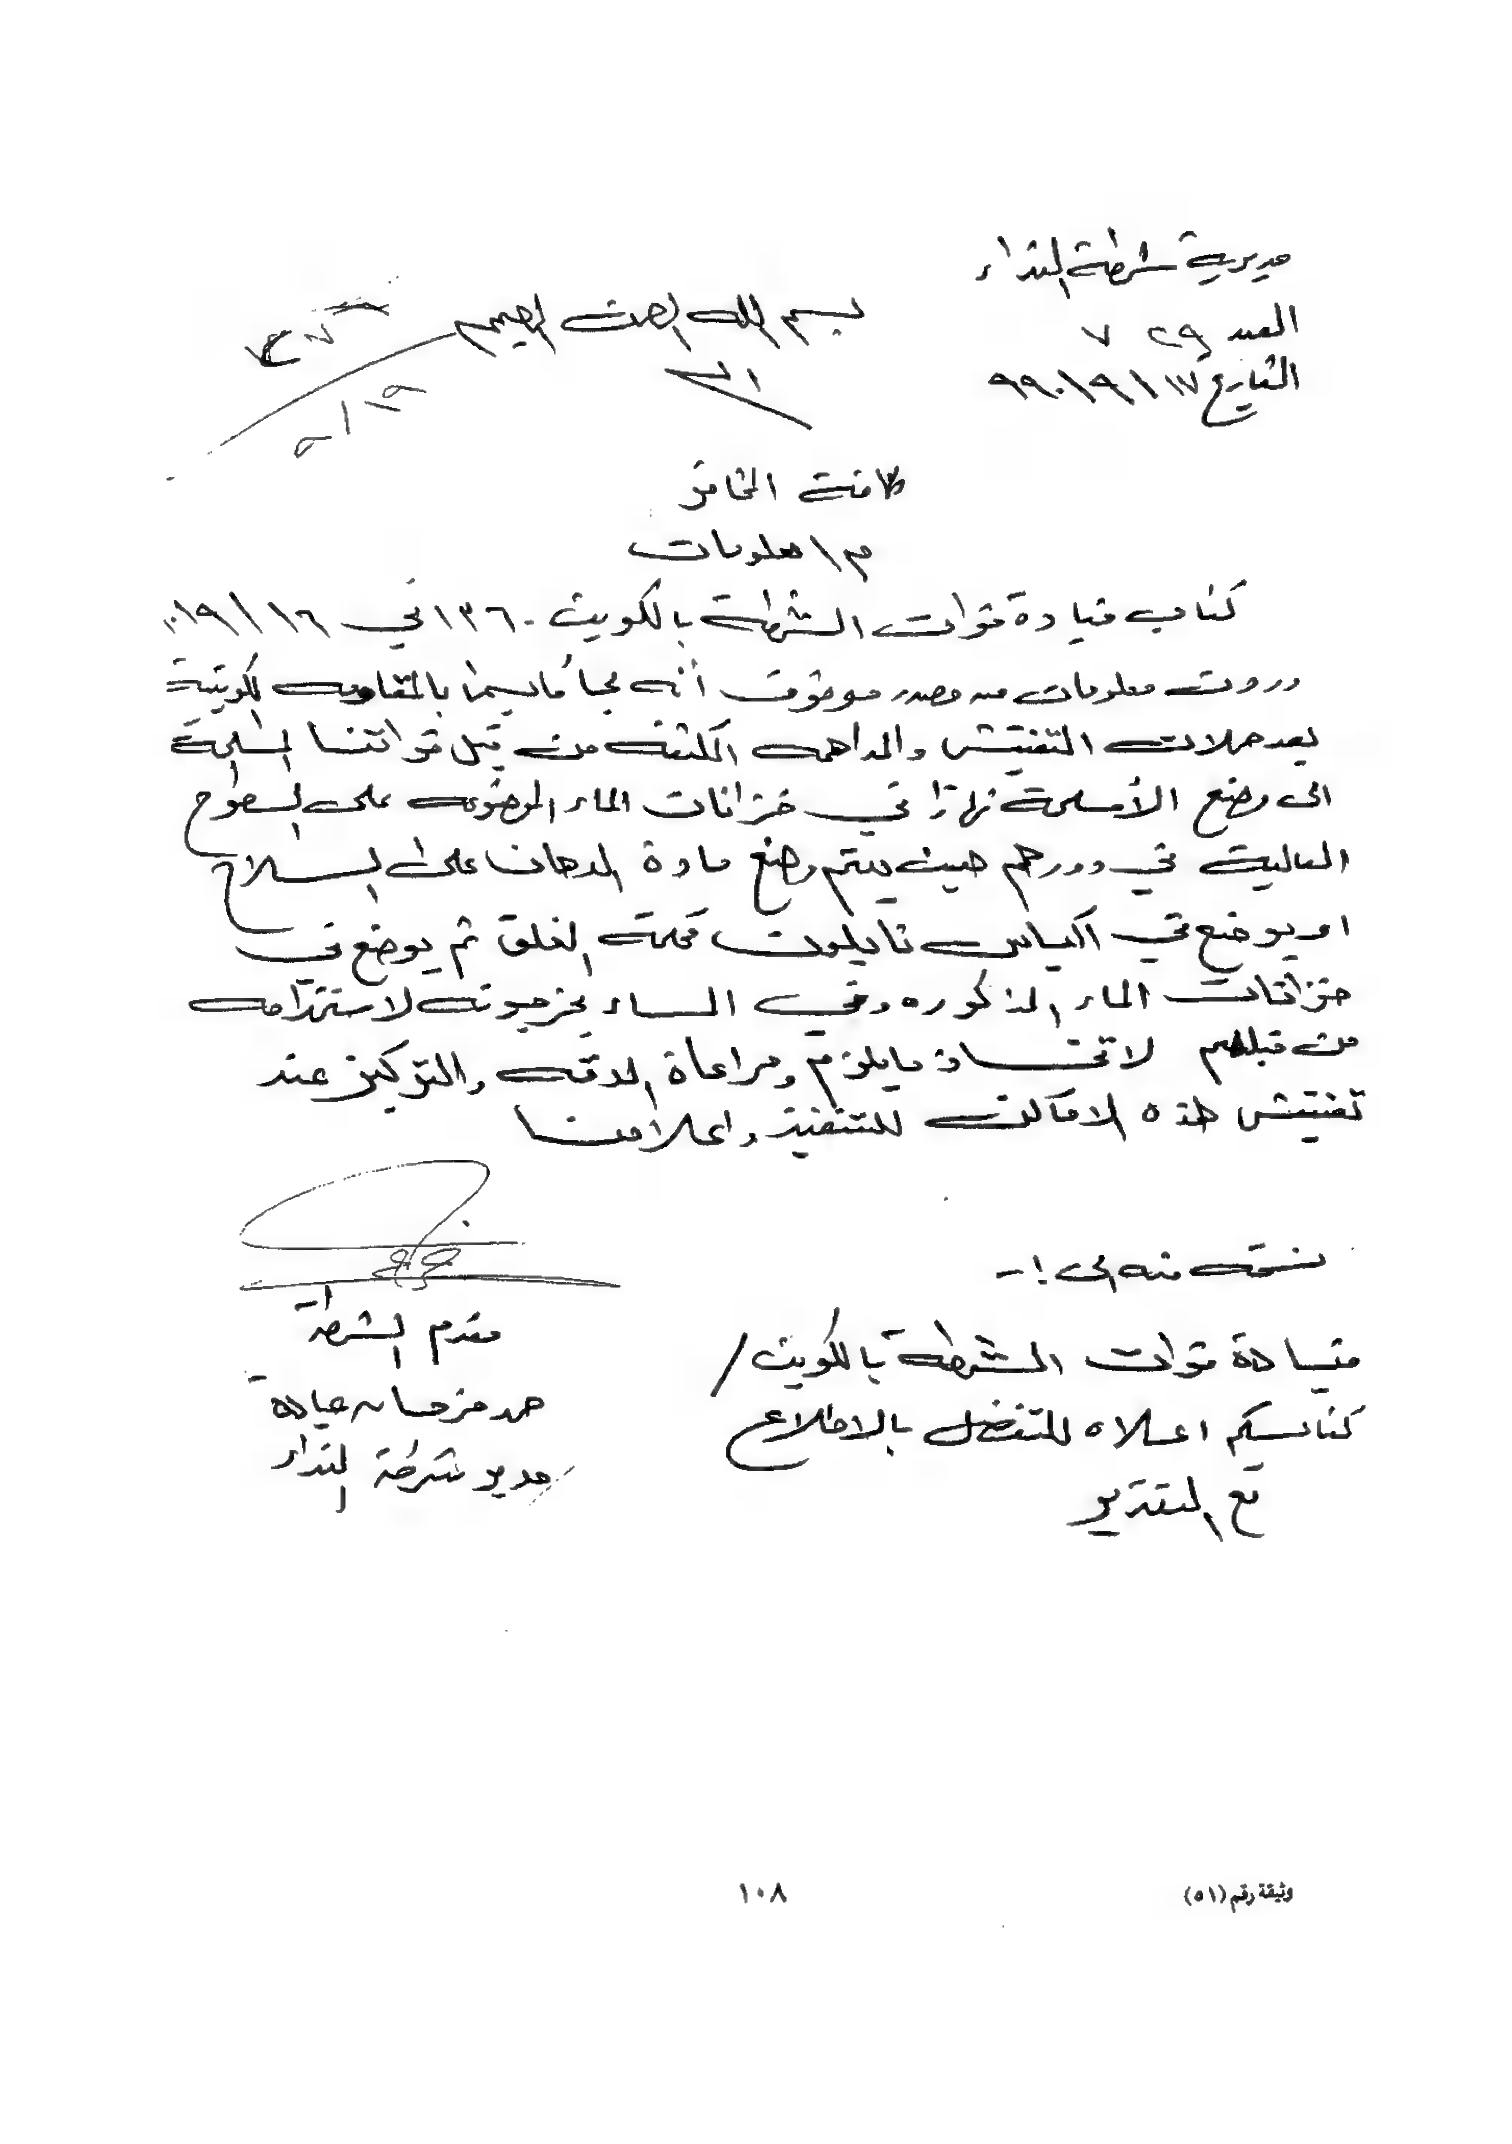 مديرية شرطة النداء
العدد ٧٢٩
التاريخ ١٧/٩/٩٩٠
بسم الله الرحمن الرحيم
الى /
٩/١٩
كافة المخافر
م/ معلومات
كتاب قيادة قوات الشرطة بالكويت ١٣٦٠ في ١٦/٩/٩٠
وردت معلومات من مصدر موثوق أنه لجأ مايسمى بالمقاومه الكويتية
بعد حملات التفتيش والمداهمه المكثفه من قبل قواتنا المسلحة
الى وضع الأسلحة نهارًا في خزانات الماء الموضوعه على السطوح
العالية في دورهم حيث يتم وضع مادة الدهان على السلاح
او يوضع في اكياس نايلون محكمة الغلق ثم يوضع في
خزانات الماء المذكوره وفي المساء يخرجونه لاستخدامه
من قبلهم لاتخاذ مايلزم ومراعاة الدقه والتركيز عند
تفتيش هذه الاماكن للتنفيذ واعلامنا
نسخه منه الى :-
قيادة قوات الشرطة بالكويت /
كتابكم اعلاه للتفضل بالاطلاع
مع التقدير
مقدم الشرطة
حمد مزحان عيادة
مدير شرطة النداء
وثيقة رقم (٥١)
١٠٨